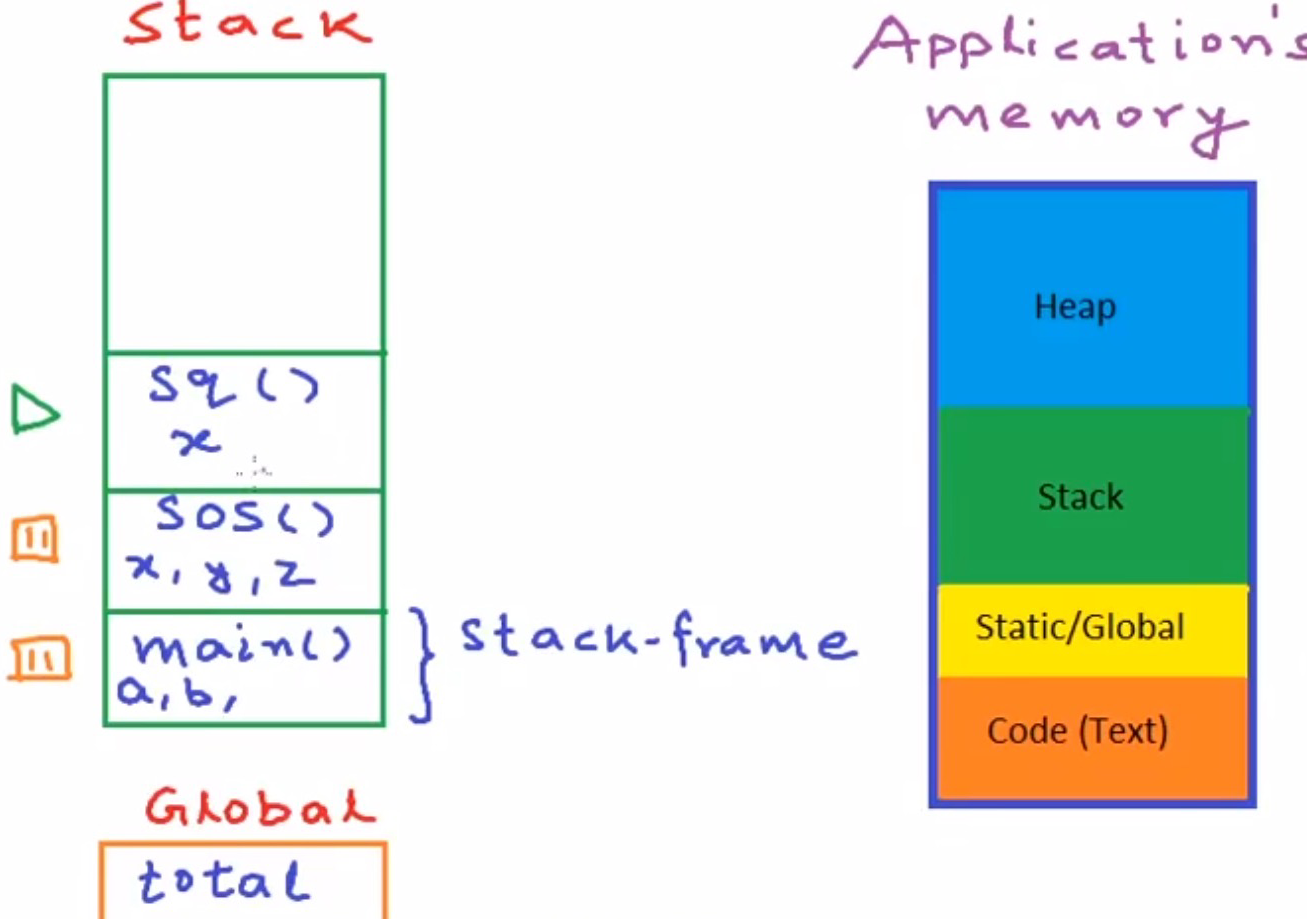 Stack
Sq ()
x
SOS()
x, y, z
main()
a, b,
stack-frame
Global
total
Application's
memory
Heap
Stack
Static/Global
Code (Text)